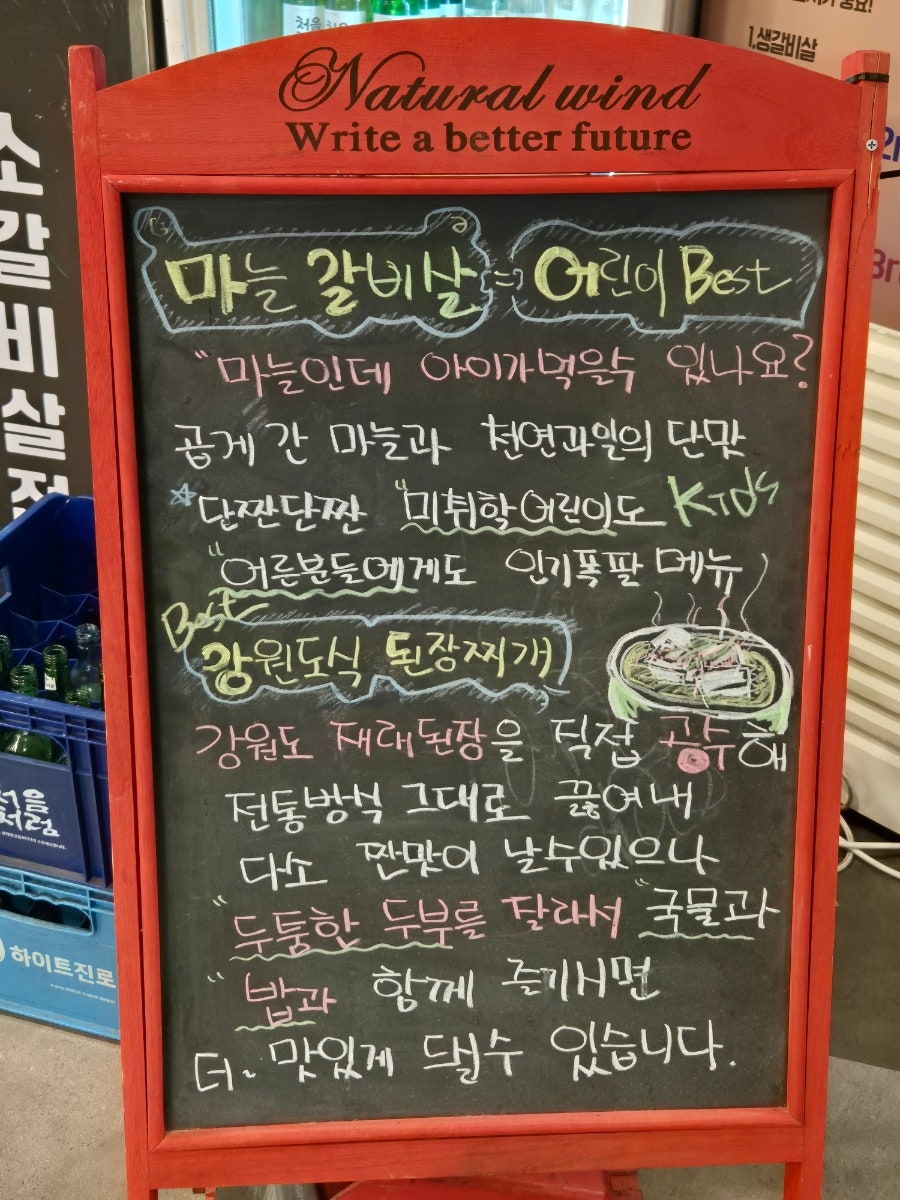 처음처럼
1.생갈비살
Natural wind
Write a better future
소갈비살전
마늘 갈비살 = 어린이 Best
"마늘인데 아이가먹을수 있나요?
곱게 간 마늘과 천연과일의 단맛
☆단짠단짠 "미취학어린이도 KIDS
"어른분들에게도 인기폭팔 메뉴
Best
강원도식 된장찌개
강원도 재래된장을 직접 공수해
전통방식 그대로 끓여내
다소 짠맛이 날수있으나
"두툼한 두부를 잘라서 "국물과
"밥과 함께 즐기시면
더~ 맛있게 드실수 있습니다.
처음처럼
하이트진로